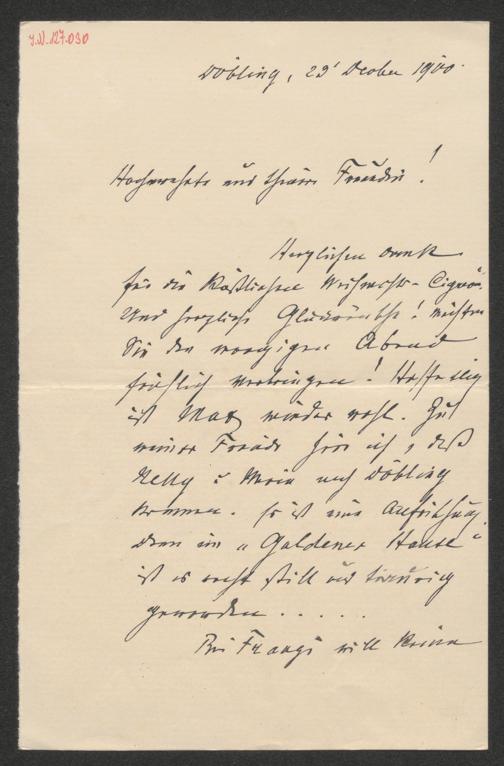 I.N. 127.030
Döbling, 23' Dcober 1900.
Hochverehrte und theure Freundin!
Herzlichen Dank
für die köstlichen Weihnachts-
Und herzliche Glückwünsche! Möchten
Sie den morgigen Abend
fröhlich verbringen! Hoffentlich
ist Max wieder wohl. Zu
meiner Freude höre ich, daß
Nelly u Marie nach Döbling
kommen. Es ist eine Aufrichtung,
denn im „Goldener Hause"
ist es recht still und traurig
geworden.....
Bei Franzi will keine